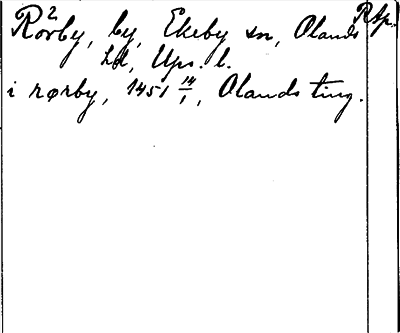 Rörby, by, Ekeby sn, Olands Rtp.
2
hd, Ups. l.
i rørby, 1451 14/1, Olands ting.